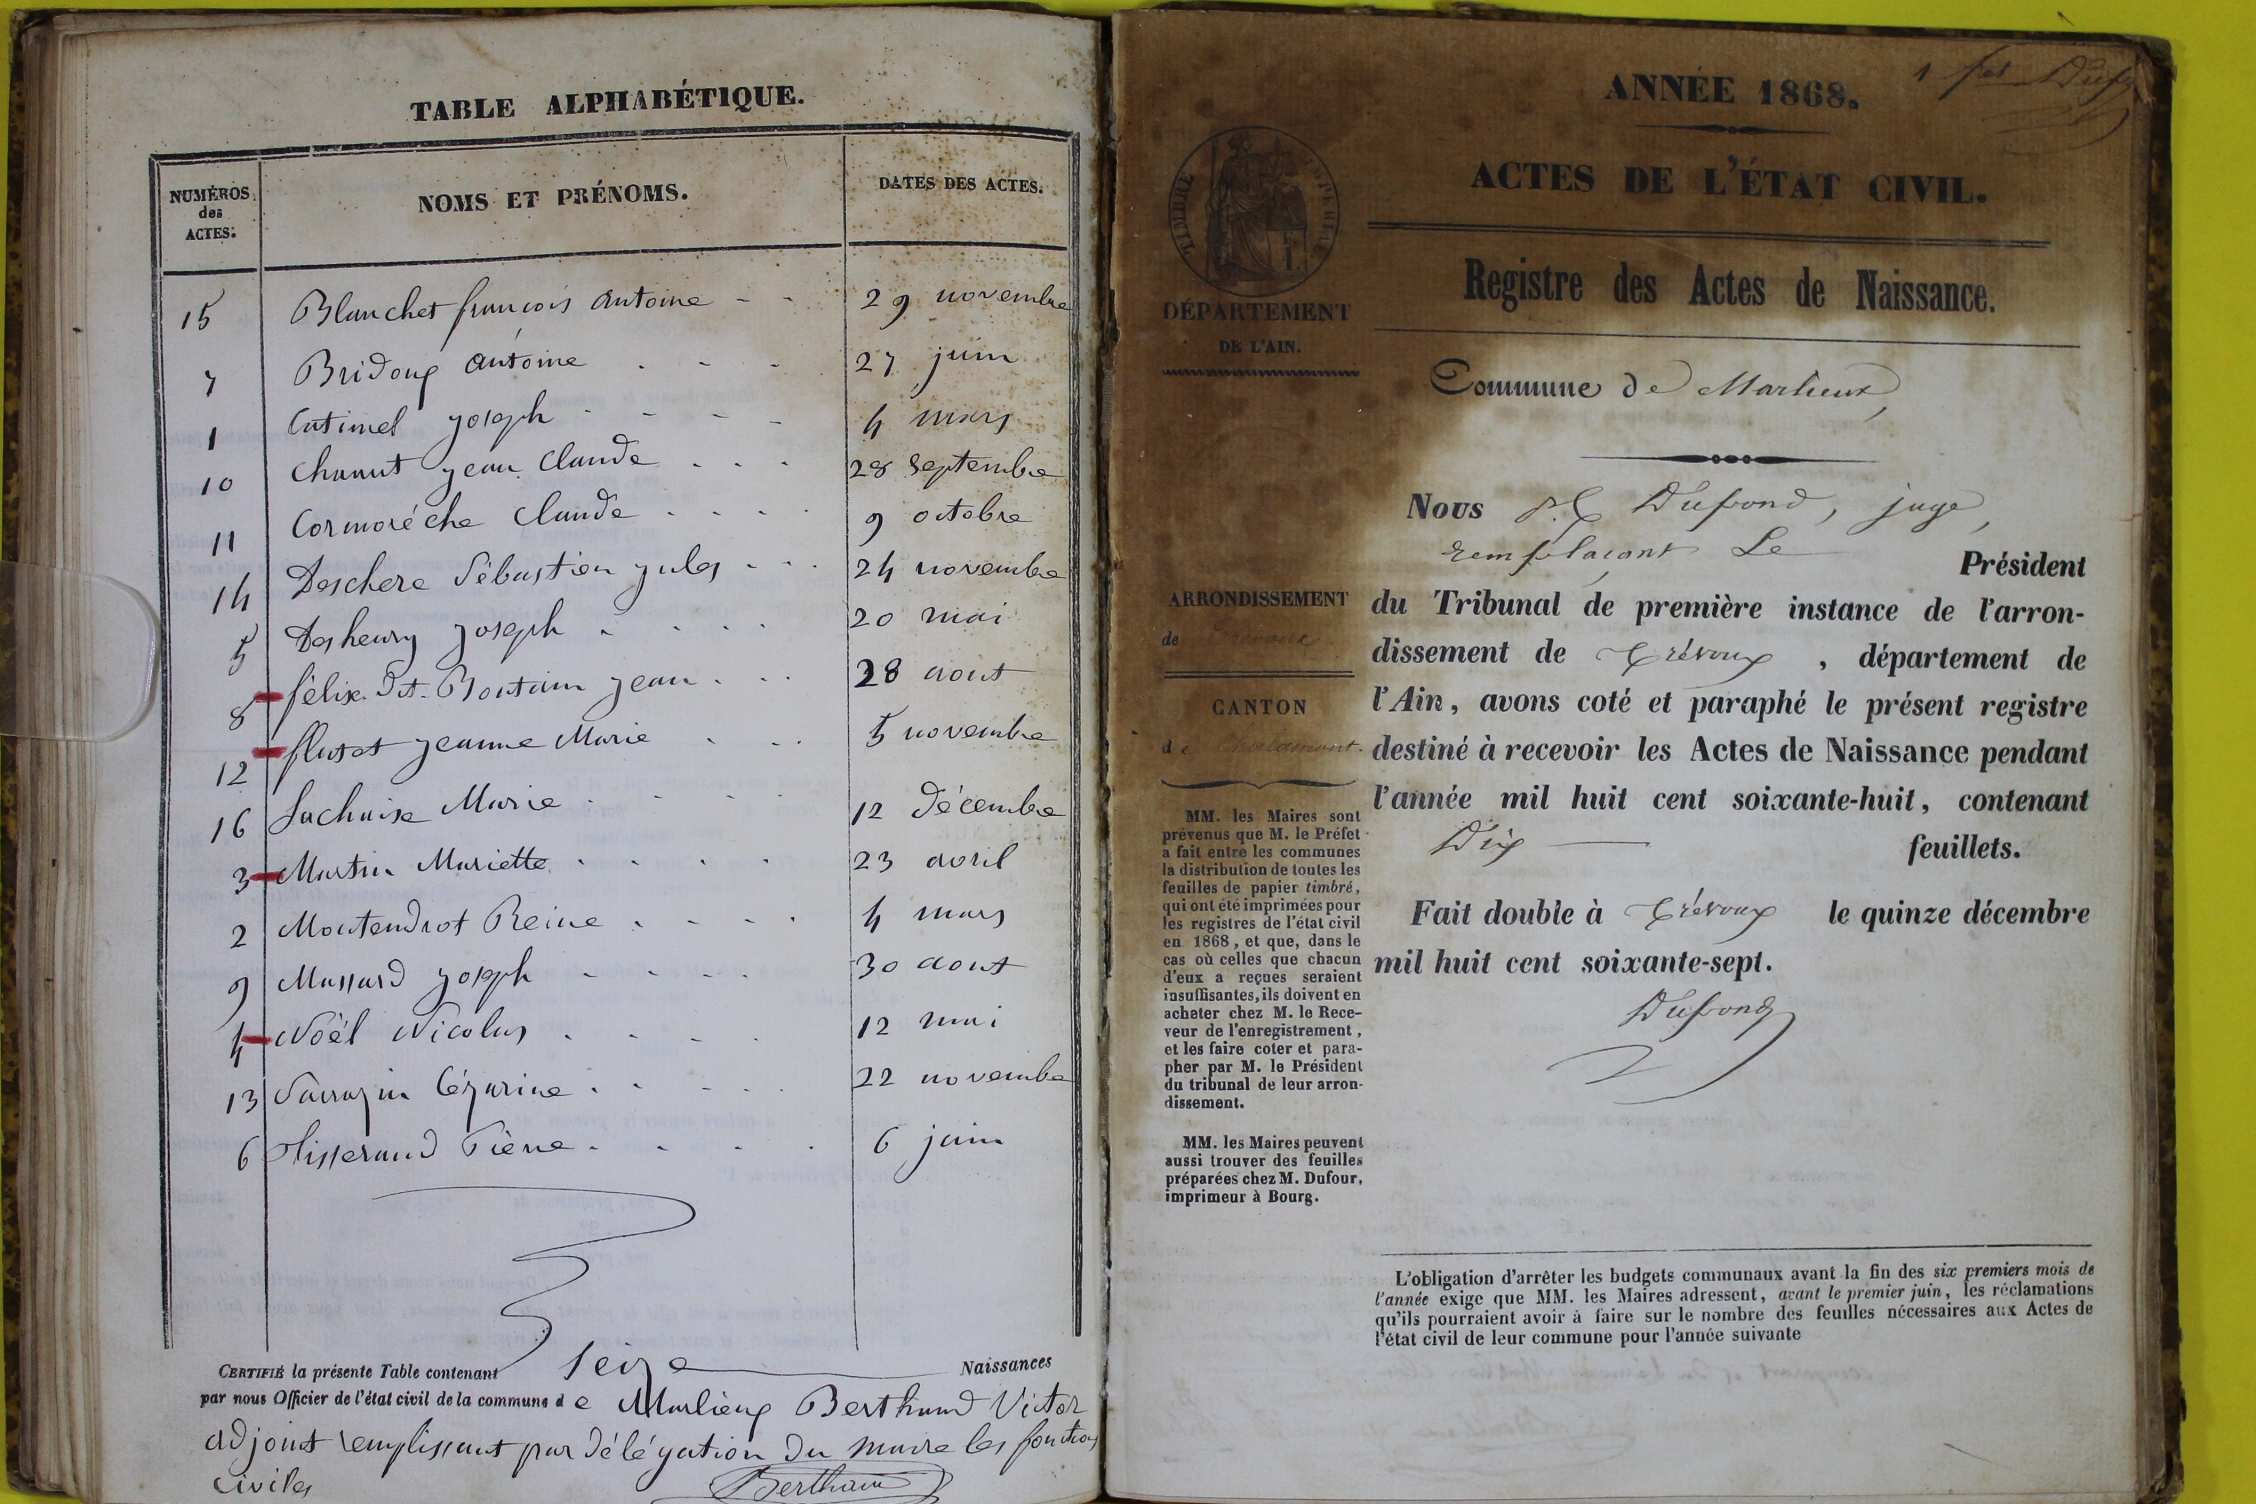 TABLE ALPHABÉTIQUE.
NUMÉROS des ACTES. NOMS ET PRÉNOMS. DATES DES ACTES.
15 Blanchet françois antoine 29 novembre
7 Bridoux antoine 27 juin
1 Catimel joseph 4 mars
10 Chanut jean Claude 28 septembre
11 Cormorèche Claude 9 octobre
14 Deschere Sébastien jules 24 novembre
5 Desheury joseph 20 mai
8 félix dit Bontain jean 28 aout
12 flutet jeanne Marie 5 novembre
16 Lachaise Marie 12 décembre
3 Martin Mariette 23 avril
2 Montendrot Reine 4 mars
9 Massard joseph 30 aout
4 Noël Nicolas 12 mai
13 Sarrazin Cézarine 22 novembre
6 Tisserand Pierre 6 juin
CERTIFIÉ la présente Table contenant seize Naissances
par nous Officier de l'état civil de la commune de Marlieux Berthaud Victor
adjoint remplissant par délégation du maire les fonctions
civiles
ANNÉE 1868.
1 fet
ACTES DE L'ÉTAT CIVIL.
TIMBRE IMPERIAL
Registre des Actes de Naissance.
DÉPARTEMENT
DE L'AIN.
Commune de Marlieux
Nous Dufond, juge,
remplaçant Le Président
du Tribunal de première instance de l'arron-
dissement de Trévoux, département de
l'Ain, avons coté et paraphé le présent registre
destiné à recevoir les Actes de Naissance pendant
l'année mil huit cent soixante-huit, contenant
Dix feuillets.
Fait double à Trévoux le quinze décembre
mil huit cent soixante-sept.
Dufond
ARRONDISSEMENT
de Trévoux
CANTON
de Chalamont.
MM. les Maires sont
prévenus que M. le Préfet
a fait entre les communes
la distribution de toutes les
feuilles de papier timbré,
qui ont été imprimées pour
les registres de l'état civil
en 1868, et que, dans le
cas où celles que chacun
d'eux a reçues seraient
insuffisantes, ils doivent en
acheter chez M. le Rece-
veur de l'enregistrement,
et les faire coter et para-
pher par M. le Président
du tribunal de leur arron-
dissement.
MM. les Maires peuvent
aussi trouver des feuilles
préparées chez M. Dufour,
imprimeur à Bourg.
L'obligation d'arrêter les budgets communaux avant la fin des six premiers mois de
l'année exige que MM. les Maires adressent, avant le premier juin, les réclamations
qu'ils pourraient avoir à faire sur le nombre des feuilles nécessaires aux Actes de
l'état civil de leur commune pour l'année suivante